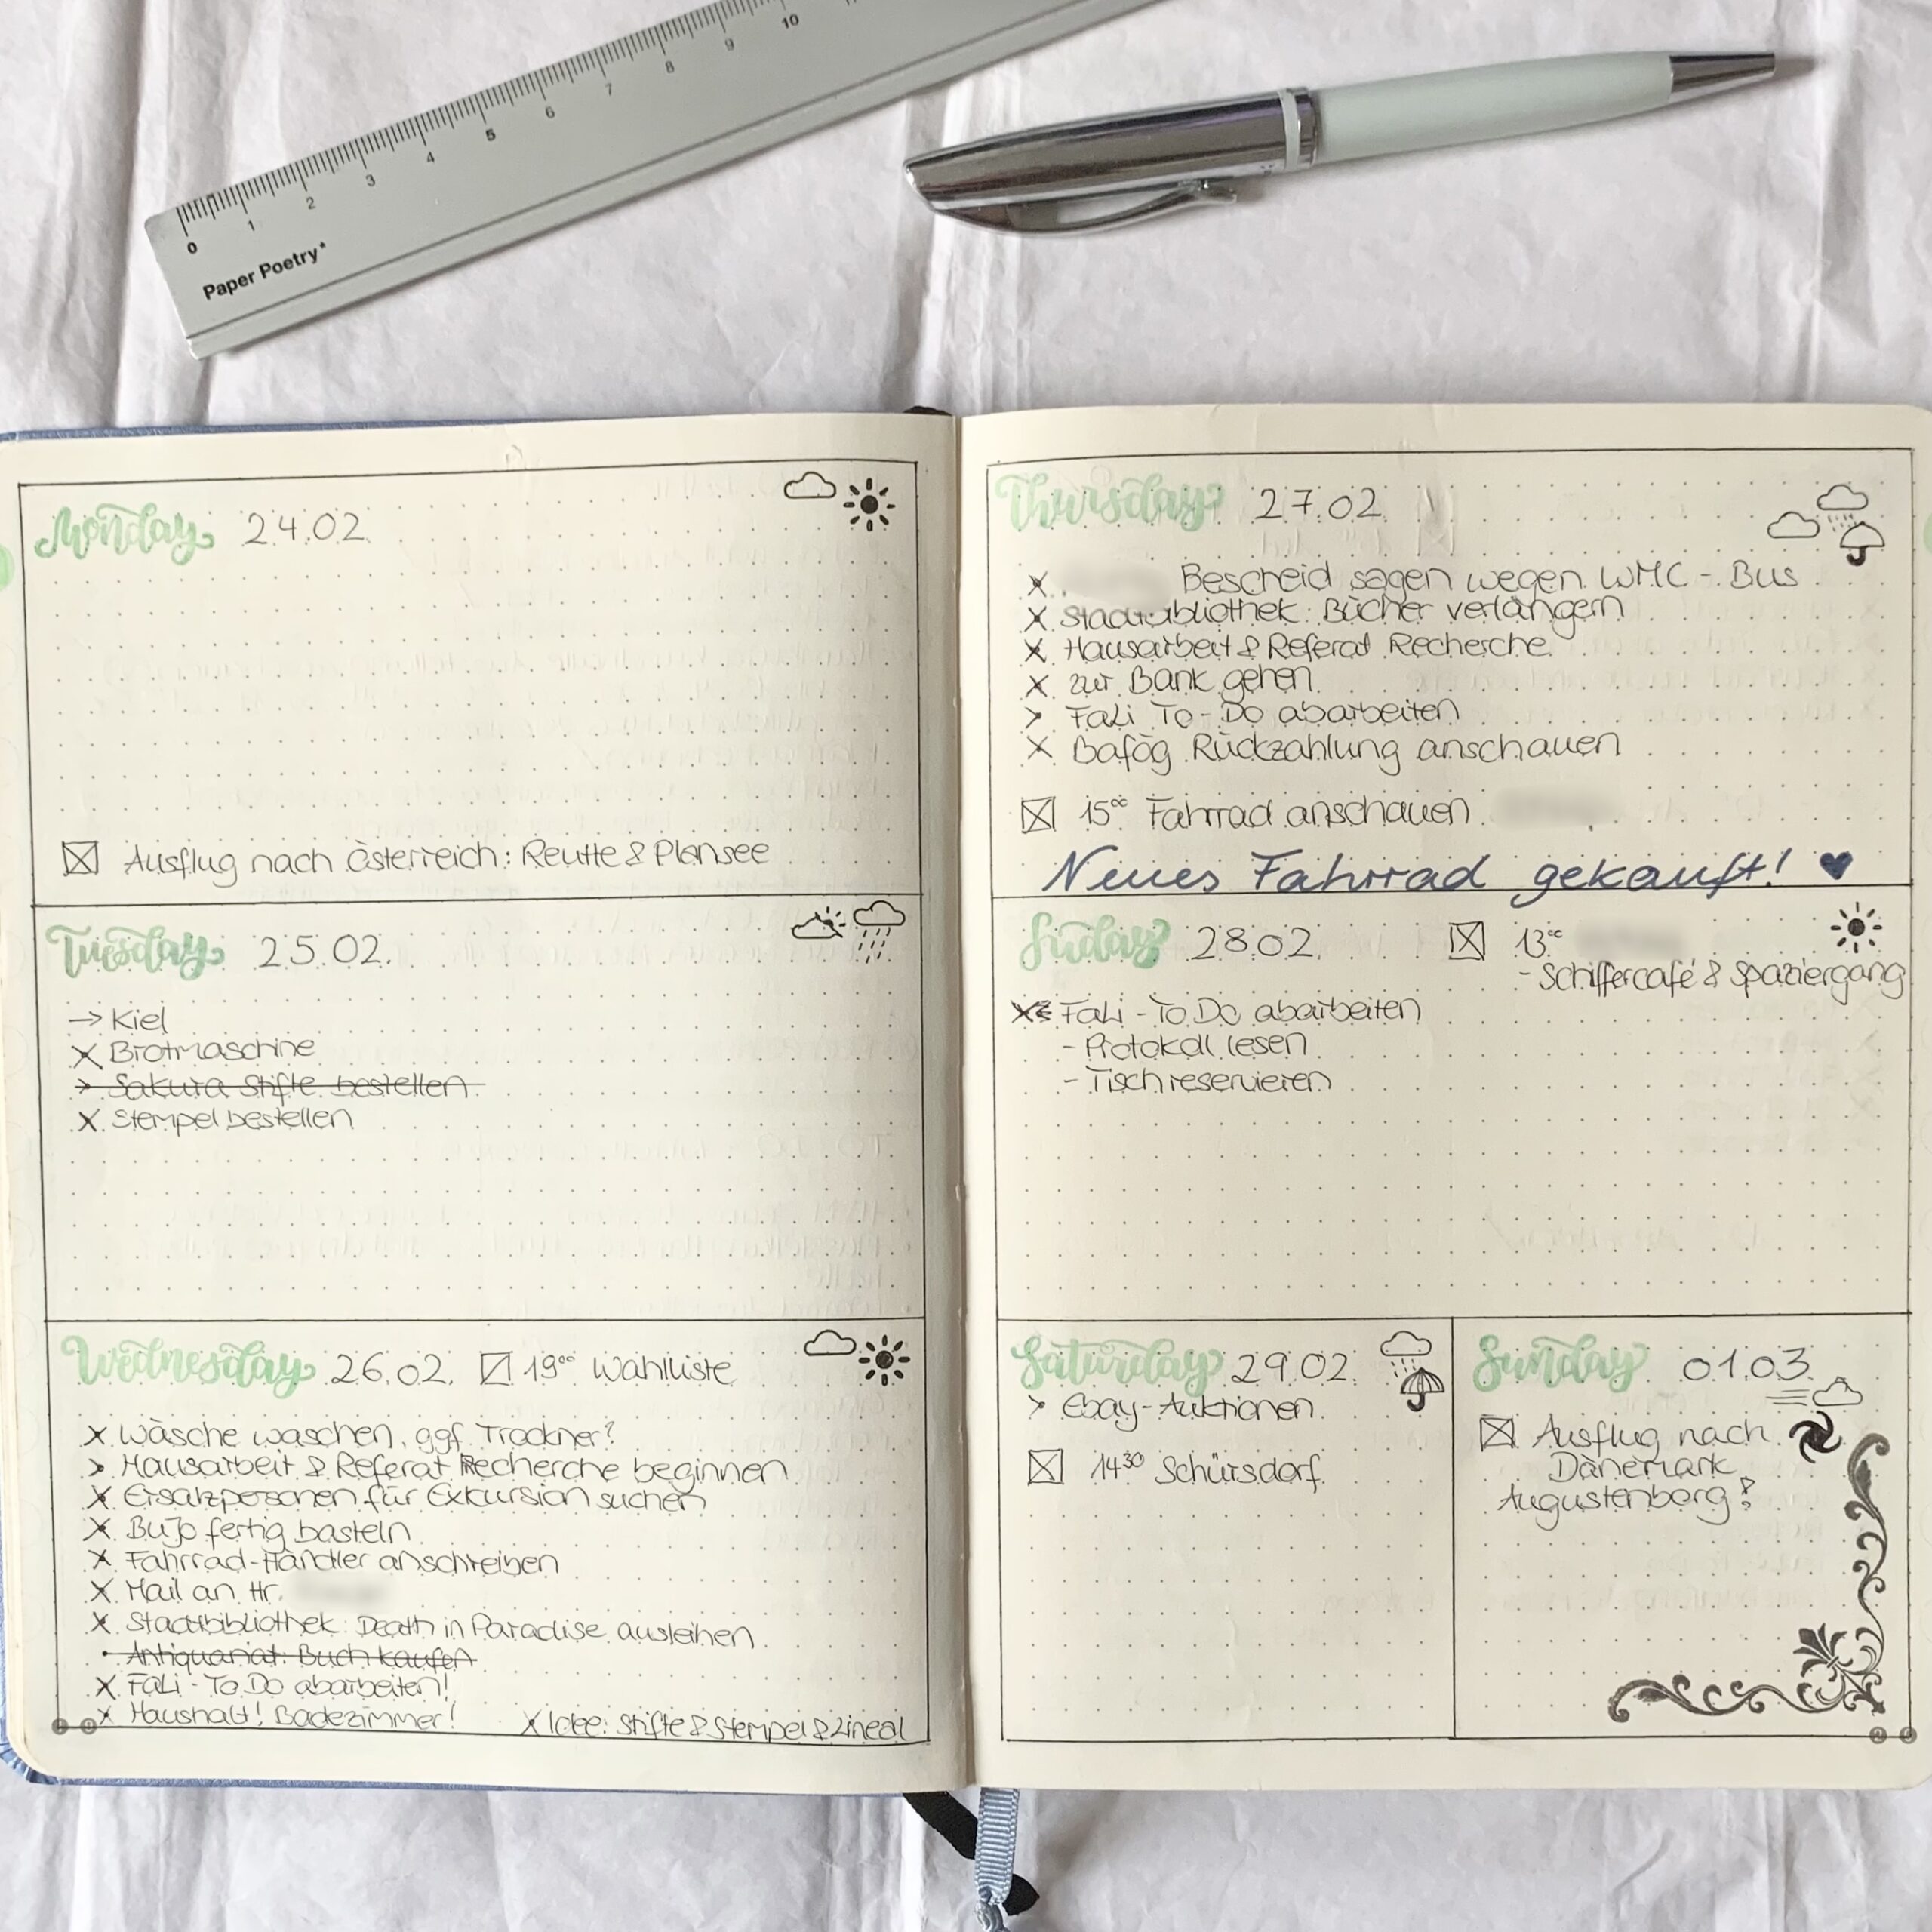 0 1 2 3 4 5 6 7 8 9 10
Paper Poetry*
Monday 24.02.
Ausflug nach Österreich: Reutte & Plansee
Tuesday 25.02.
→ Kiel
x Brotmaschine
> Sakura Stifte bestellen
x Stempel bestellen
Wednesday 26.02. 19°° Wahlliste
x Wäsche waschen, ggf. Trockner?
> Hausarbeit & Referat Recherche beginnen
x Ersatzpersonen für Exkursion suchen
x BuJo fertig basteln
x Fahrrad-Händler anschreiben
x Mail an Hr.
x Stadtbibliothek: Death in Paradise ausleihen
• Antiquariat: Buch kaufen
x FaLi - To Do abarbeiten!
x Haushalt! Badezimmer!
x Idee: Stifte & Stempel & Lineal
Thursday 27.02.
x Bescheid sagen wegen WMC - Bus
x Stadtbibliothek: Bücher verlängern
x Hausarbeit & Referat Recherche
x zur Bank gehen
> FaLi To-Do abarbeiten
x Bafög Rückzahlung anschauen
15°° Fahrrad anschauen
Neues Fahrrad gekauft! ♥
28.02. 13°°
- Schiffercafé & Spaziergang
x FaLi - To Do abarbeiten
- Protokoll lesen
- Tisch reservieren
Saturday 29.02.
> Ebay-Auktionen
14³⁰ Schürsdorf
Sunday 01.03.
Ausflug nach
Dänemark
Augustenborg?